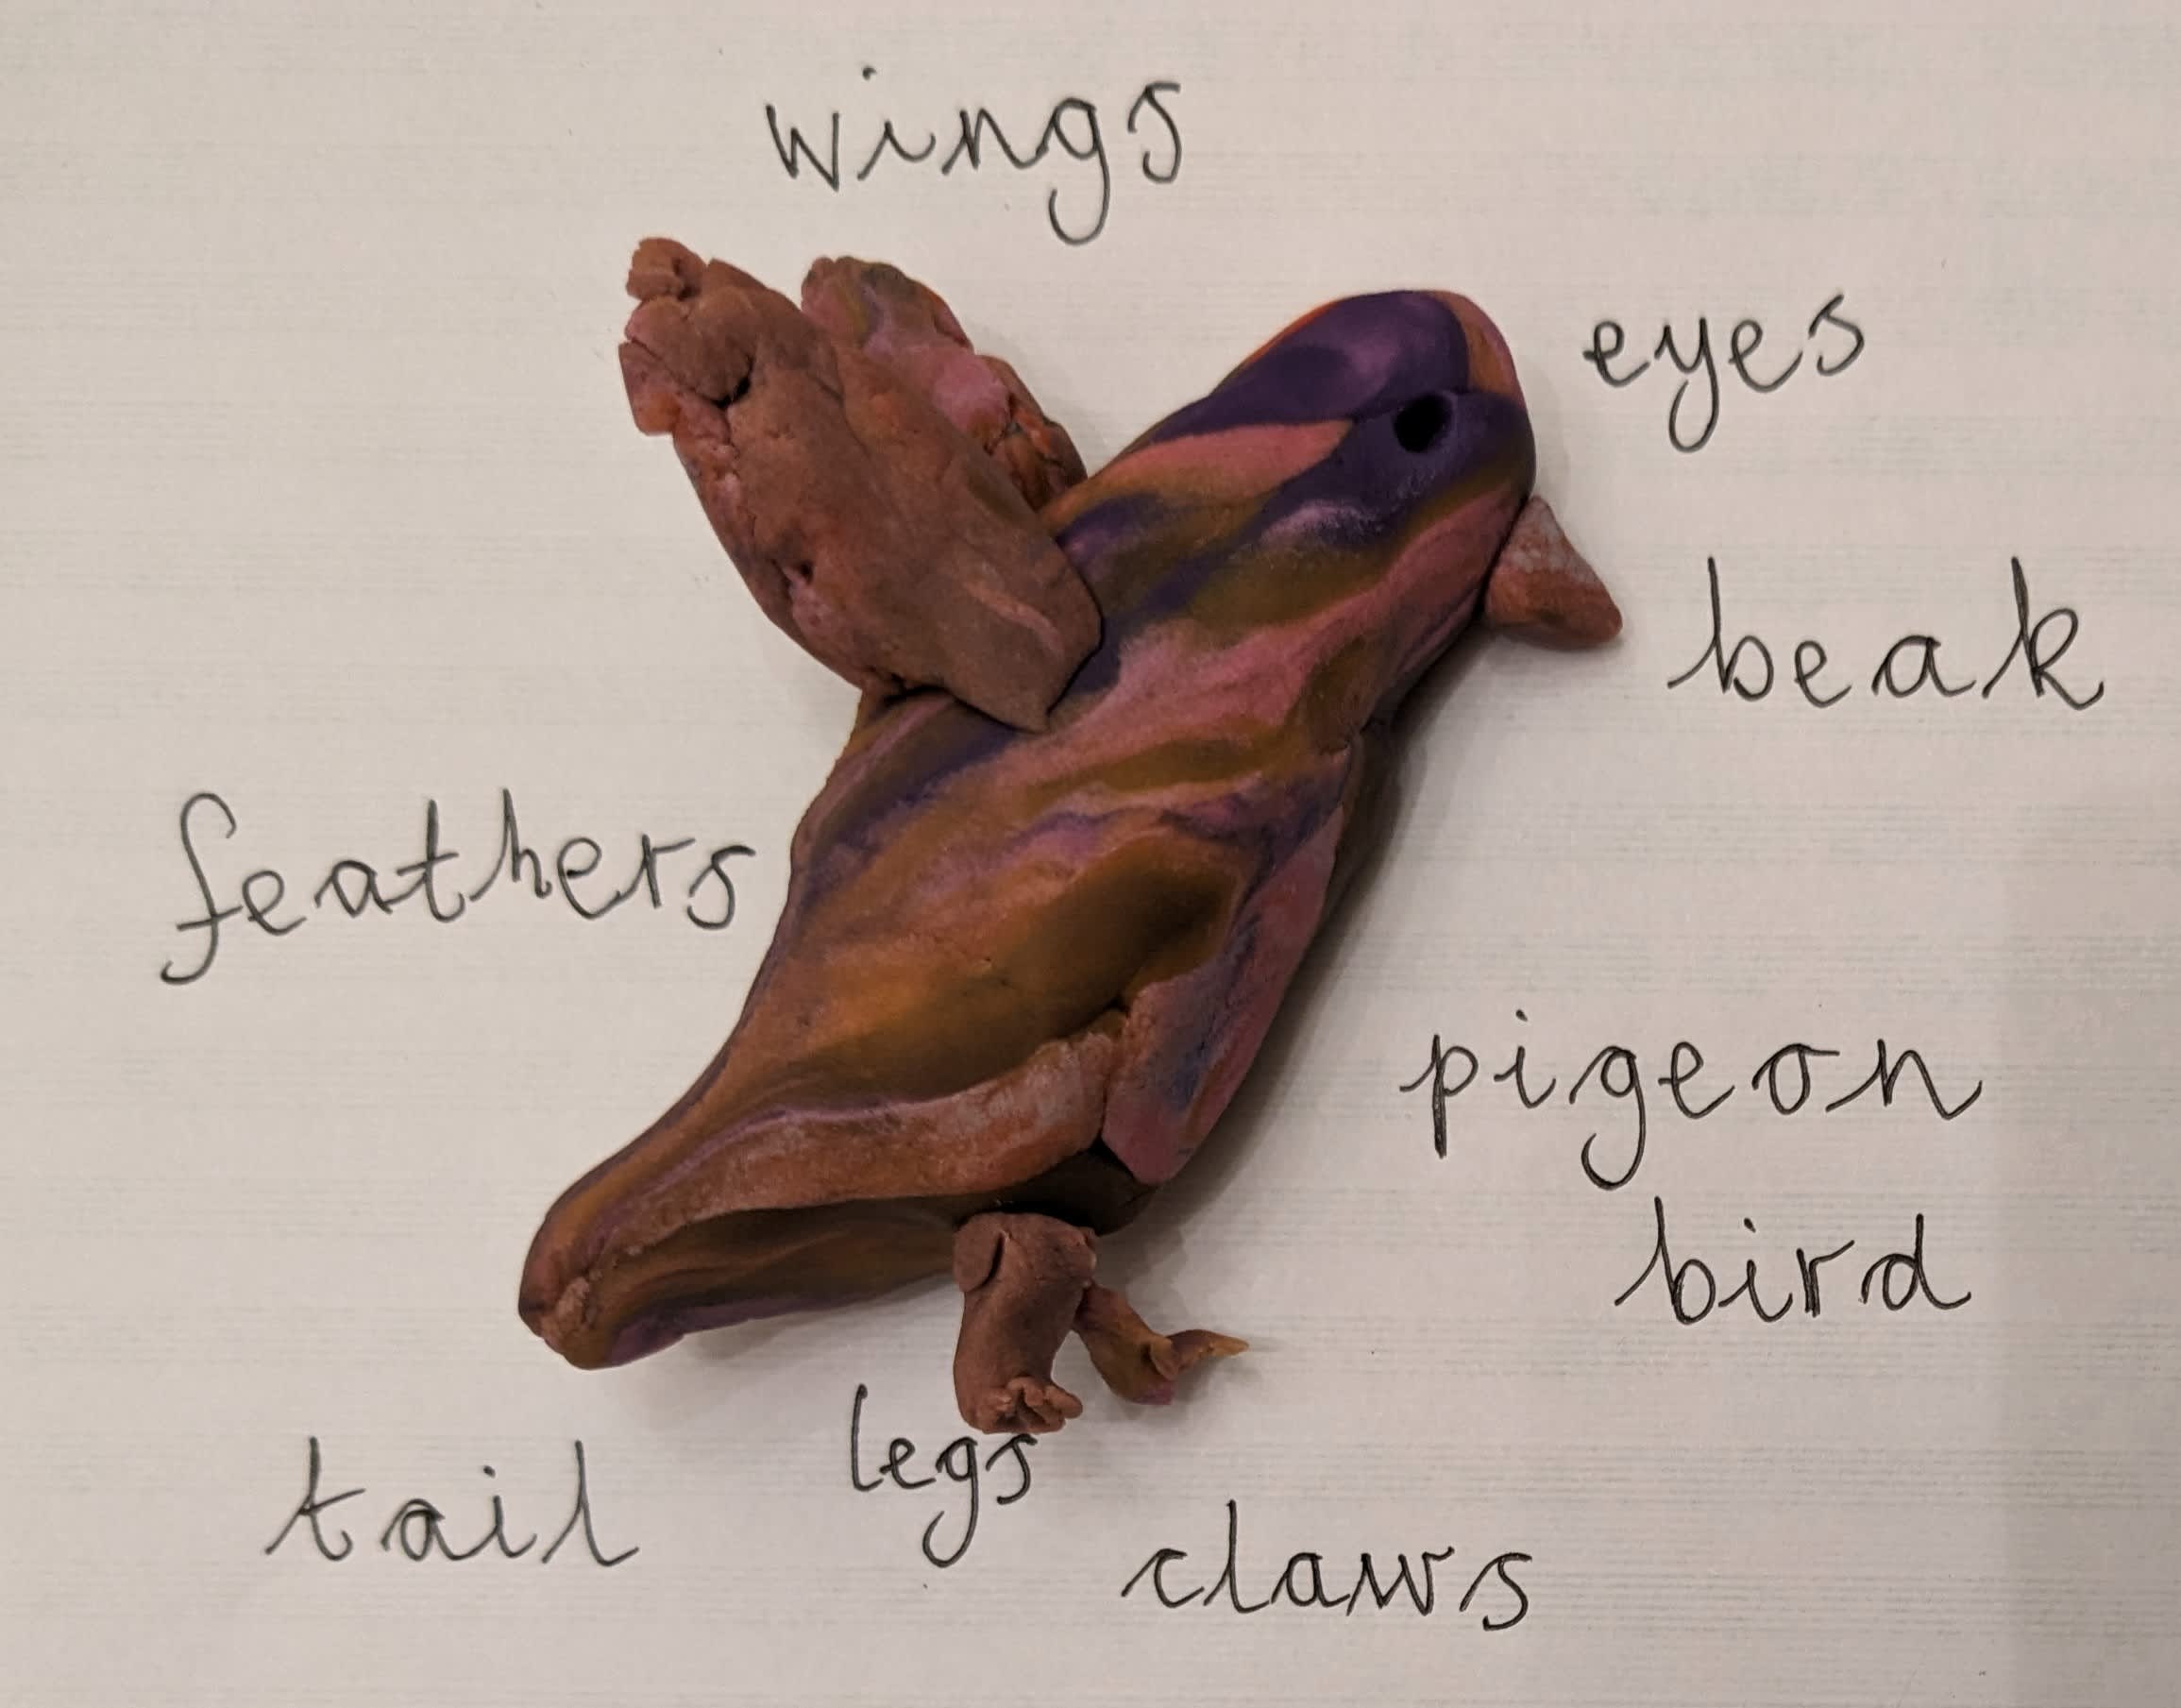 wings
eyes
beak
feathers
pigeon
bird
legs
tail
claws